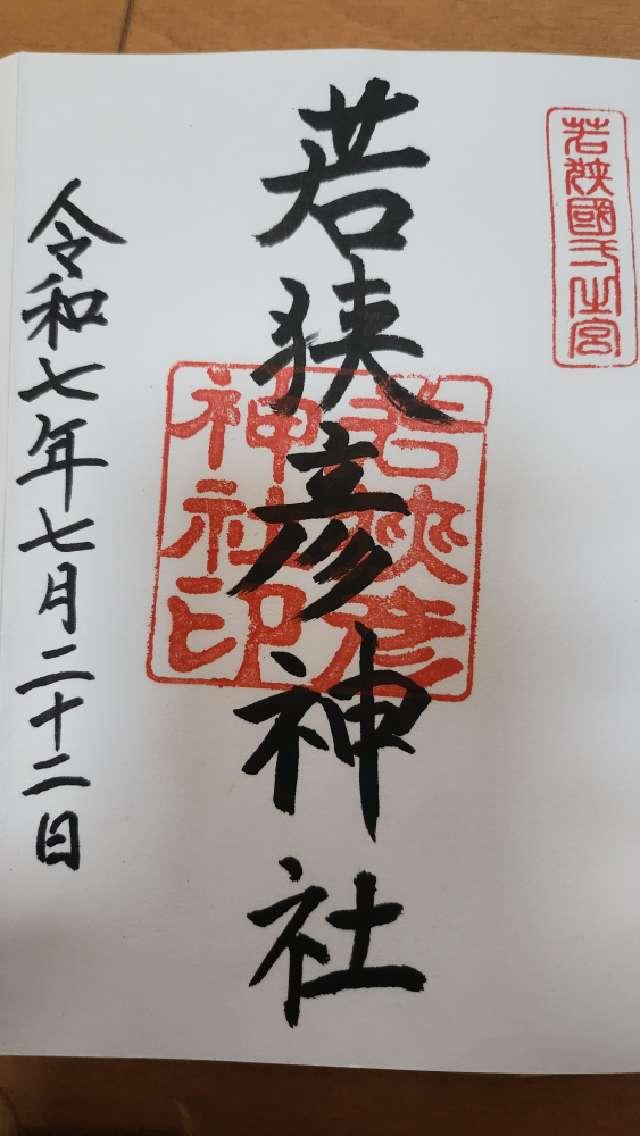 若狭國一之宮
若狭彦神社
若狭彦
神社印
令和七年七月二十二日